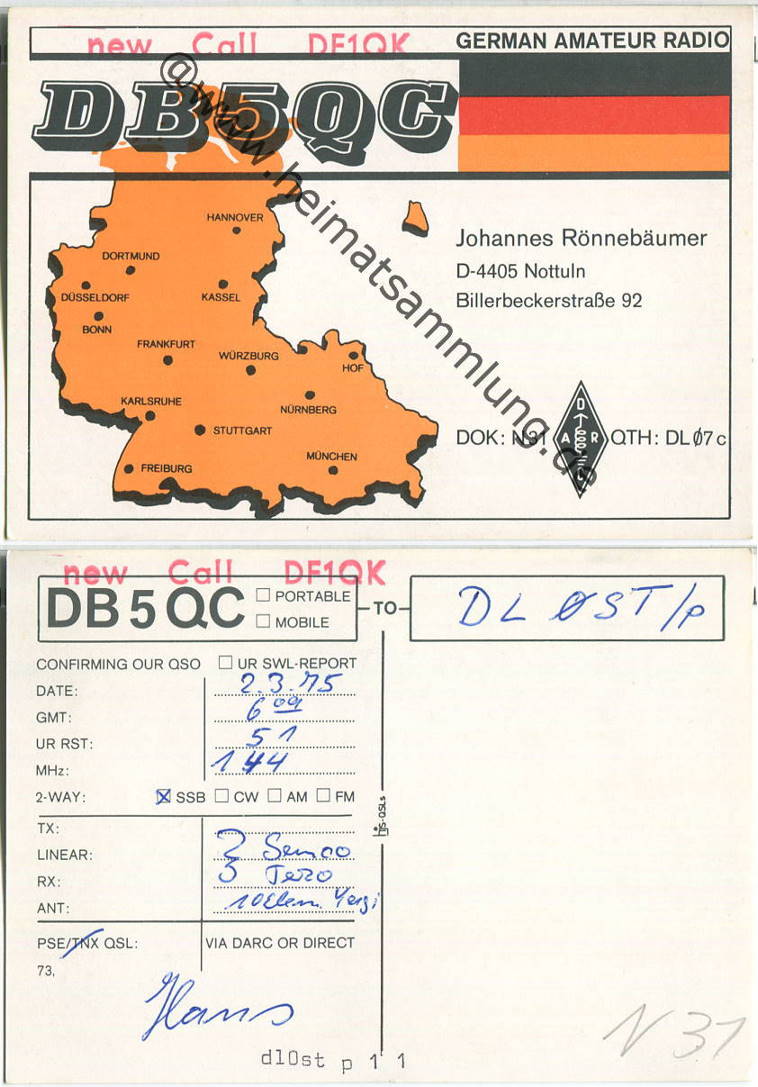 new Call DF1QK
GERMAN AMATEUR RADIO
DB5QC
@www.heimatsammlung.de
HANNOVER
DORTMUND
DÜSSELDORF
KASSEL
BONN
FRANKFURT
WÜRZBURG
HOF
KARLSRUHE
NÜRNBERG
STUTTGART
MÜNCHEN
FREIBURG
Johannes Rönnebäumer
D-4405 Nottuln
Billerbeckerstraße 92
DOK: N31
D
A R
C
QTH: DL Ø7 c
new Call DF1QK
DB 5 QC
PORTABLE
MOBILE
TO
DL ØST/p
CONFIRMING OUR QSO UR SWL-REPORT
DATE: 2.3.75
GMT: 6 09
UR RST: 51
MHz: 144
2-WAY: SSB CW AM FM
TX:
LINEAR: Semco
RX:
ANT: 10 Elem. Yagi
PSE/TNX QSL: VIA DARC OR DIRECT
73,
Hans
hjs-QSLs
dl0st p 1 1
N 31